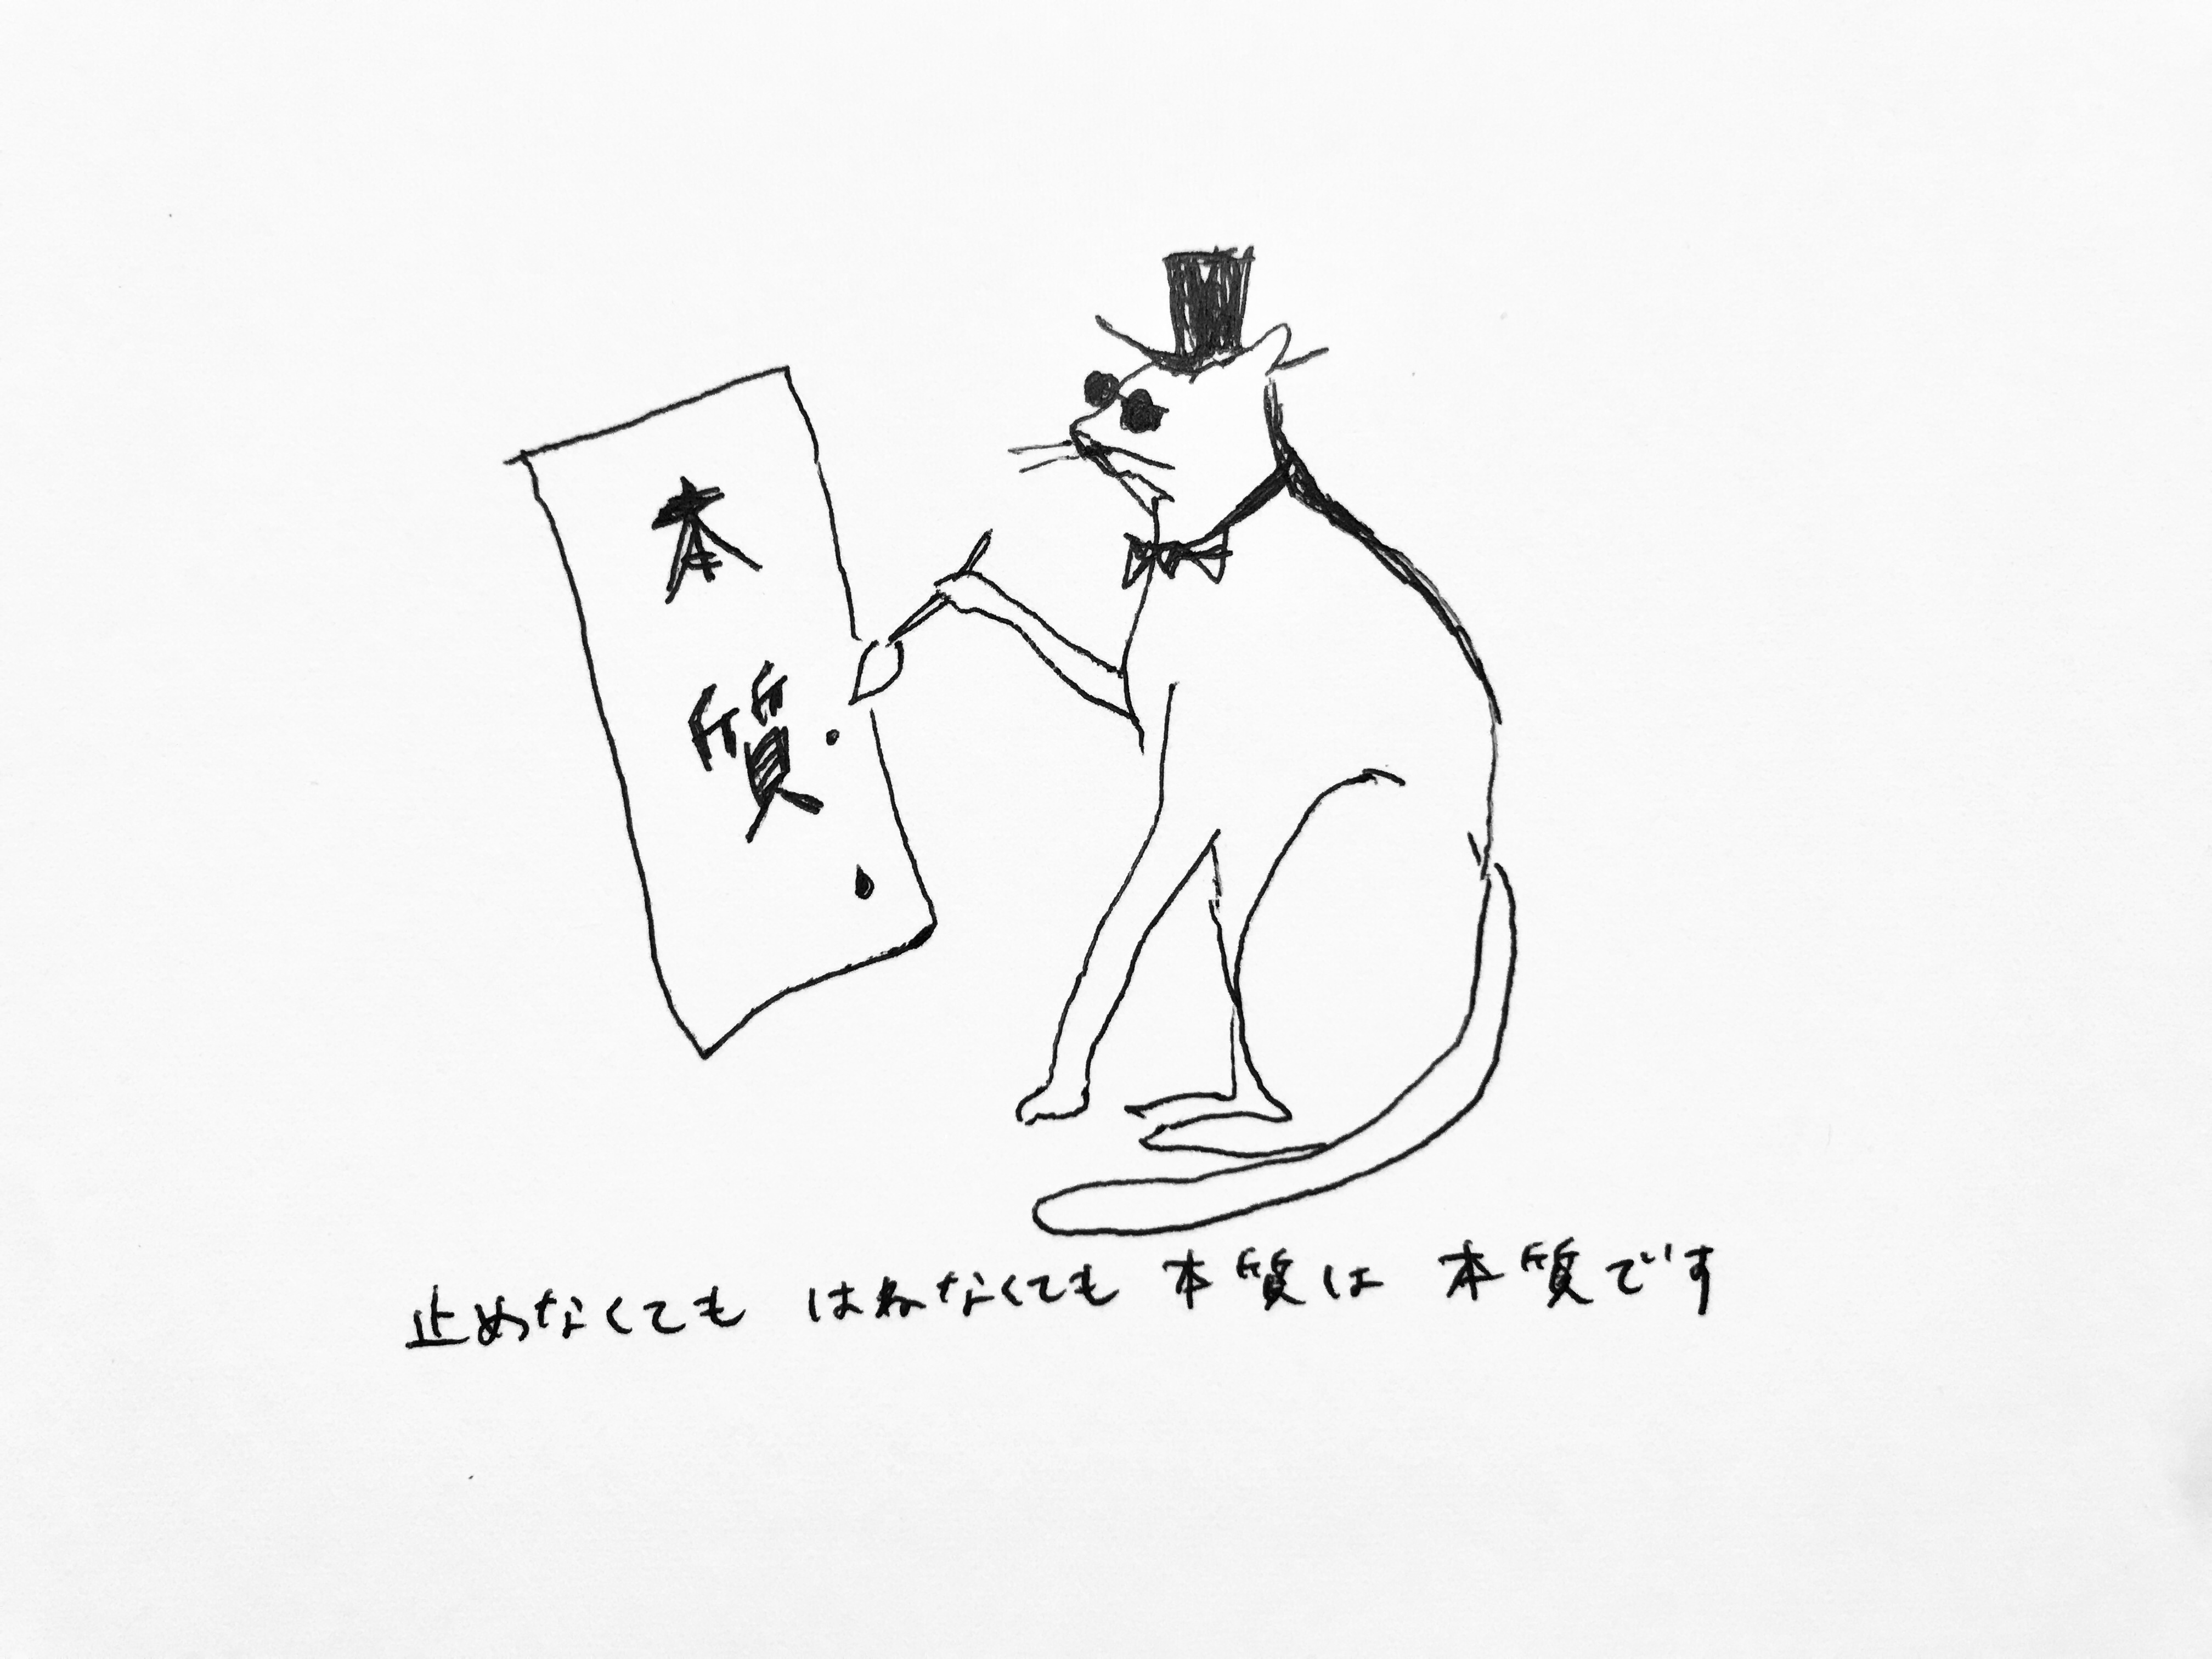 本質
止めなくても はねなくても 本質は 本質です